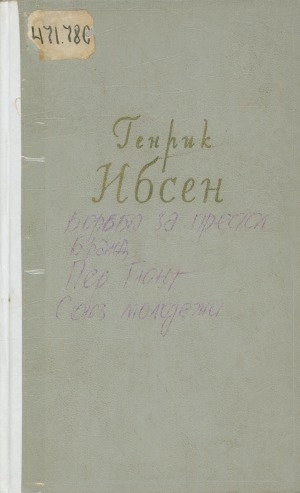 471.780
Генрик
Ибсен
Борьба за престол
Бранд
Пер Гюнт
Союз молодежи